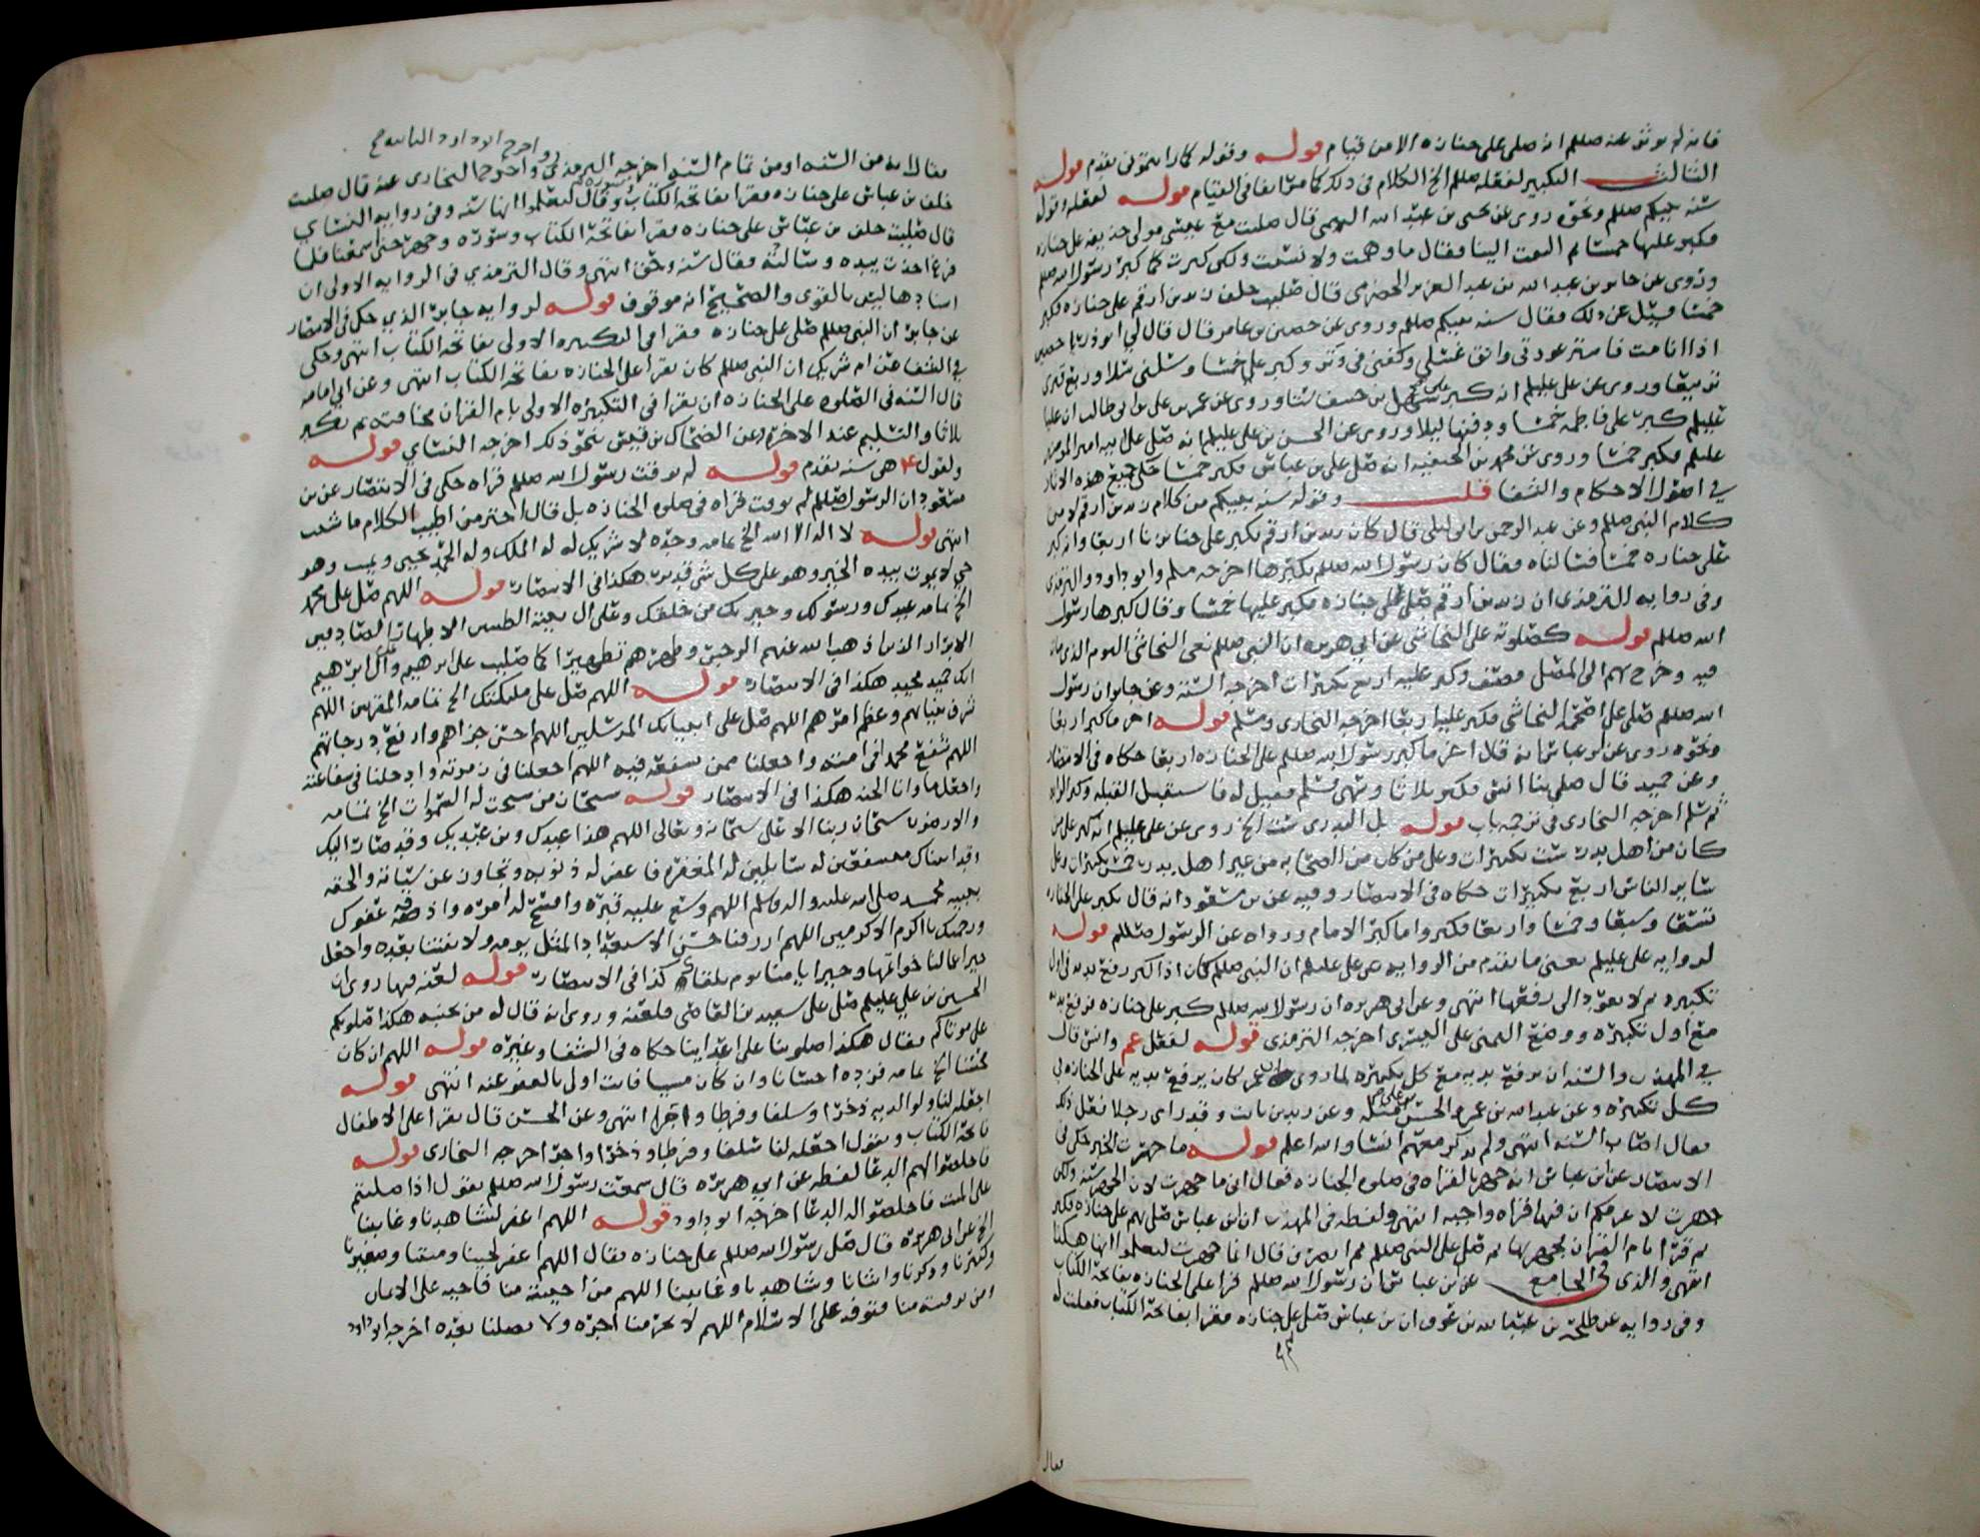 فانه لم يوثر عنه صللم انه صلى على جنازه الا من قيام قوله وقوله كما رايتموني تقدم قوله
الثالث التكبير لفعله صللم الخ الكلام في ذلك كما مر سابقا في القيام قوله لفعله وقوله
سنه نبيكم صللم ونحوه روى عن يحيى بن عبد الله التيمي قال صليت مع عيسى مولى حذيفه على جنازه
فكبر عليها خمسا ثم التفت الينا فقال ما وهمت ولا نسيت ولكن كبرت كما كبر رسول الله صللم
وروى عن جابر بن عبد الله بن عبد العزيز الحضرمي قال صليت خلف زيد بن ارقم على جنازه فكبر
خمسا فسئل عن ذلك فقال سنه نبيكم صللم وروى عن حصين بن عامر قال قال لي ابو ذر يا حصين
اذا انا مت فاستر عورتي وانق غسلي وكفني في وتر وكبر علي خمسا وسلني سلا وربع قبري
تربيعا وروى عن علي عليلم انه كبر على سهل بن حنيف ستا وروى عن عمر بن علي بن ابي طالب ان عليا
عليلم كبر على فاطمه خمسا ودفنها ليلا وروى عن الحسن بن علي عليلم انه صلى على ابيه امير المومنين
عليلم فكبر خمسا وروى عن محمد بن الحنفيه انه صلى على بن عباس فكبر خمسا حكى جميع هذه الاثار
في اصول الاحكام والشفا قلت وقوله سنه نبيكم من كلام زيد بن ارقم لا من
كلام النبي صللم وعن عبد الرحمن بن ابي ليلى قال كان زيد بن ارقم يكبر على جنايزنا اربعا وانه كبر
على جنازه خمسا فسالناه فقال كان رسول الله صللم يكبرها اخرجه مسلم وابو داود والترمذي
وفي روايه الترمذي ان زيد بن ارقم صلى على جنازه فكبر عليها خمسا وقال كبرها رسول
الله صللم قوله كصلوته على النجاشي عن ابي هريره ان النبي صللم نعى النجاشي اليوم الذي مات
فيه وخرج بهم الى المصلى فصف وكبر عليه اربع تكبيرات اخرجه السته وعن جابر ان رسول
الله صللم صلى على اصحمه النجاشي فكبر عليه اربعا اخرجه البخاري ومسلم قوله اخر ما كبر اربعا
ونحوه روى عن ابن عباس انه قال اخر ما كبر رسول الله صللم على الجنازه اربعا حكاه في الانتصار
وعن حميد قال صلى بنا انس فكبر ثلاثا وسهى فسلم فقيل له فاستقبل القبله وكبر الرابعه
ثم سلم اخرجه البخاري في ترجمه باب قوله بل البدري ست الخ روى عن علي عليلم انه كبر على من
كان من اهل بدر ست تكبيرات وعلى من كان من الصحابه من غير اهل بدر خمس تكبيرات وعلى
ساير الناس اربع تكبيرات حكاه في الانتصار وفيه عن بن مسعود انه قال نكبر على الجنازه
تسعا وسبعا وخمسا واربعا فكبروا ما كبر الامام ورواه عن الرسول صللم قوله
لروايه علي عليلم يعني ما تقدم من الروايه عن علي عليلم ان النبي صللم كان اذا كبر رفع يديه في اول
تكبيره ثم لا يعود الى رفعها انتهى وعن ابي هريره ان رسول الله صللم كبر على جنازه فرفع يديه
مع اول تكبيره ووضع اليمنى على اليسرى اخرجه الترمذي قوله لفعل عم وانس قال
في المهذب والسنه ان يرفع يديه مع كل تكبيره لما روى ان عمر كان يرفع يديه على الجنازه في
كل تكبيره وعن عبد الله بن عمر والحسن بن علي مثله وعن زيد بن ثابت وقد راى رجلا فعل ذلك
فقال اصاب السنه انتهى ولم يذكر معهم انسا والله اعلم قوله ما جهرت الخبر حكى في
الانتصار عن ابن عباس انه جهر بالقراه في صلوه الجنازه فقال اني ما جهرت لان الجهر سنه ولكن
جهرت لاعرفكم ان فيها قراه واجبه انتهى ولفظه في المهذب ان ابن عباس صلى بهم على جنازه فكبر
ثم قرا بام القران يجهر بها ثم صلى على النبي صللم ثم انصرف قال انما جهرت لتعلموا انها هكذا
انتهى والذي في الجامع عن بن عباس ان رسول الله صللم قرا على الجنازه بفاتحه الكتاب
وفي روايه عن طلحه بن عبد الله بن عوف ان بن عباس صلى على جنازه فقرا بفاتحه الكتاب فقلت له
فقال
واخرج ابو داود الثانيه صح
فقال انه من السنه او من تمام السنه اخرجه الترمذي واخرج البخاري عنه قال صليت
خلف بن عباس على جنازه فقرا بفاتحه الكتاب وسوره وقال لتعلموا انها سنه وفي روايه النسائي
قال صليت خلف بن عباس على جنازه فقرا بفاتحه الكتاب وسوره وجهر حتى اسمعنا فلما
فرغ اخذت بيده وسالته فقال سنه وحق انتهى وقال الترمذي في الروايه الاولى ان
اسنادها ليس بالقوي والصحيح انه موقوف قوله لروايه جابر الذي حكى في الانتصار
عن جابر ان النبي صللم صلى على جنازه فقرا في التكبيره الاولى بفاتحه الكتاب انتهى وحكى
في الشفا عن ام شريك ان النبي صللم كان يقرا على الجنازه بفاتحه الكتاب انتهى وعن ابي امامه
قال السنه في الصلوه على الجنازه ان يقرا في التكبيره الاولى بام القران مخافته ثم يكبر
ثلاثا والتسليم عند الاخره وعن الضحاك بن قيس بنحو ذلك اخرجه النسائي قوله
ولقول ع هي سنه تقدم قوله لم يوقت رسول الله صللم قراه حكى في الانتصار عن بن
مسعود ان الرسول صللم لم يوقت قراه في صلوه الجنازه بل قال اختر من اطيب الكلام ما شئت
انتهى قوله لا اله الا الله الخ تمامه وحده لا شريك له له الملك وله الحمد يحيي ويميت وهو
حي لا يموت بيده الخير وهو على كل شي قدير هكذا في الانتصار قوله اللهم صل على محمد
الخ تمامه عبدك ورسولك وخيرتك من خلقك وعلى ال بيته الطيبين الاطهار الصادقين
الابرار الذين اذهب الله عنهم الرجس وطهرهم تطهيرا كما صليت على ابرهيم وعلى ال ابرهيم
انك حميد مجيد هكذا في الانتصار قوله اللهم صل على مليكتك الخ تمامه المقربين اللهم
شرف بنيانهم وعظم امرهم اللهم صل على انبيائك المرسلين اللهم احسن جزاهم وارفع درجاتهم
اللهم شفع محمدا في امته واجعلنا ممن تشفعه فيه اللهم اجعلنا في زمرته وادخلنا في شفاعته
واجعل ماوانا الجنه هكذا في الانتصار قوله سبحان من سبحت له السموات الخ تمامه
والارضون سبحان ربنا الاعلى سبحانه وتعالى اللهم هذا عبدك وبن عبديك وقد صار اليك
وقد اتيناك مستشفعين له سائلين له المغفره فاغفر له ذنوبه وتجاوز عن سيئاته والحقه
بنبيه محمد صلى الله عليه واله وسلم اللهم وسع عليه قبره وافسح له امره واذقه عفوك
ورحمتك يا اكرم الاكرمين اللهم ارزقنا حسن الاستعداد لمثل يومه ولا تفتنا بعده واجعل
خير اعمالنا خواتمها وخير ايامنا يوم نلقاك كذا في الانتصار قوله لعنه فيها روى ان
الحسين بن علي عليلم صلى على سعيد بن العاصي فلعنه وروى انه قال له من بجنبه هكذا صلوتكم
على موتاكم فقال هكذا صلوتنا على اعدائنا حكاه في الشفا وغيره قوله اللهم ان كان
محسنا الخ تمامه فزده احسانا وان كان مسيا فانت اولى بالعفو عنه انتهى قوله
اجعله لنا ولوالديه ذخرا وسلفا وفرطا واجرا انتهى وعن الحسن قال يقرا على الاطفال
فاتحه الكتاب ويقول اجعله لنا سلفا وفرطا وذخرا واجرا اخرجه البخاري قوله
فاخلصوا لهم الدعا لفظه عن ابي هريره قال سمعت رسول الله صللم يقول اذا صليتم
على الميت فاخلصوا له الدعا اخرجه ابو داود قوله اللهم اغفر لشاهدنا وغايبنا
الخ عن ابي هريره قال صلى رسول الله صللم على جنازه فقال اللهم اغفر لحينا وميتنا وصغيرنا
وكبيرنا وذكرنا وانثانا وشاهدنا وغايبنا اللهم من احييته منا فاحيه على الايمان
ومن توفيته منا فتوفه على الاسلام اللهم لا تحرمنا اجره ولا تضلنا بعده اخرجه ابو داود